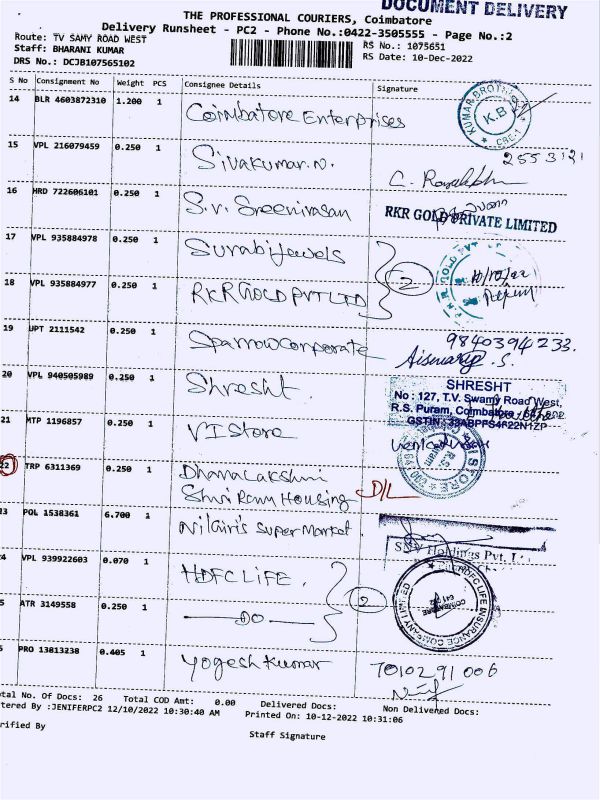 DOCUMENT DELIVERY
THE PROFESSIONAL COURIERS, Coimbatore
Delivery Runsheet - PC2 - Phone No.:0422-3505555 - Page No.:2
Route: TV SAMY ROAD WEST
Staff: BHARANI KUMAR
DRS No.: DCJB107565102
RS No.: 1075651
RS Date: 10-Dec-2022
S No Consignment No Weight PCS Consignee Details Signature
14 BLR 4603872310 1.200 1 Coimbatore Enterprises
KUMAR BROTHERS
K.B
CBE-1
15 VPL 216079459 0.250 1 Sivakumar.N.
2553121
16 HRD 722606101 0.250 1 S.V. Sreenivasan
RKR GOLD PRIVATE LIMITED
17 VPL 935884978 0.250 1 Surabi Jewels
2
18 VPL 935884977 0.250 1 RKR GOLD PVT LTD
19 UPT 2111542 0.250 1 Sparrow corporate
9840394233.
Aiswarya .S.
20 VPL 940505989 0.250 1 Shresht.
SHRESHT
No : 127, T.V. Swamy Road West,
R.S. Puram, Coimbatore
21 MTP 1196857 0.250 1 VI Store
22 TRP 6311369 0.250 1 Dhanalakshmi
Shri Ram Housing D/L
3 POL 1538361 6.700 1 Nilgiri's Super Market.
Holdings Pvt.
4 VPL 939922603 0.070 1 HDFC LIFE.
2
HDFC LIFE INSURANCE COMPANY LIMITED
COIMBATORE
5 ATR 3149558 0.250 1 DO
6 PRO 13813238 0.405 1 Yogesh Kumar
7010291006
otal No. Of Docs: 26 Total COD Amt: 0.00 Delivered Docs: Non Delivered Docs:
tered By :JENIFERPC2 12/10/2022 10:30:40 AM Printed On: 10-12-2022 10:31:06
rified By
Staff Signature